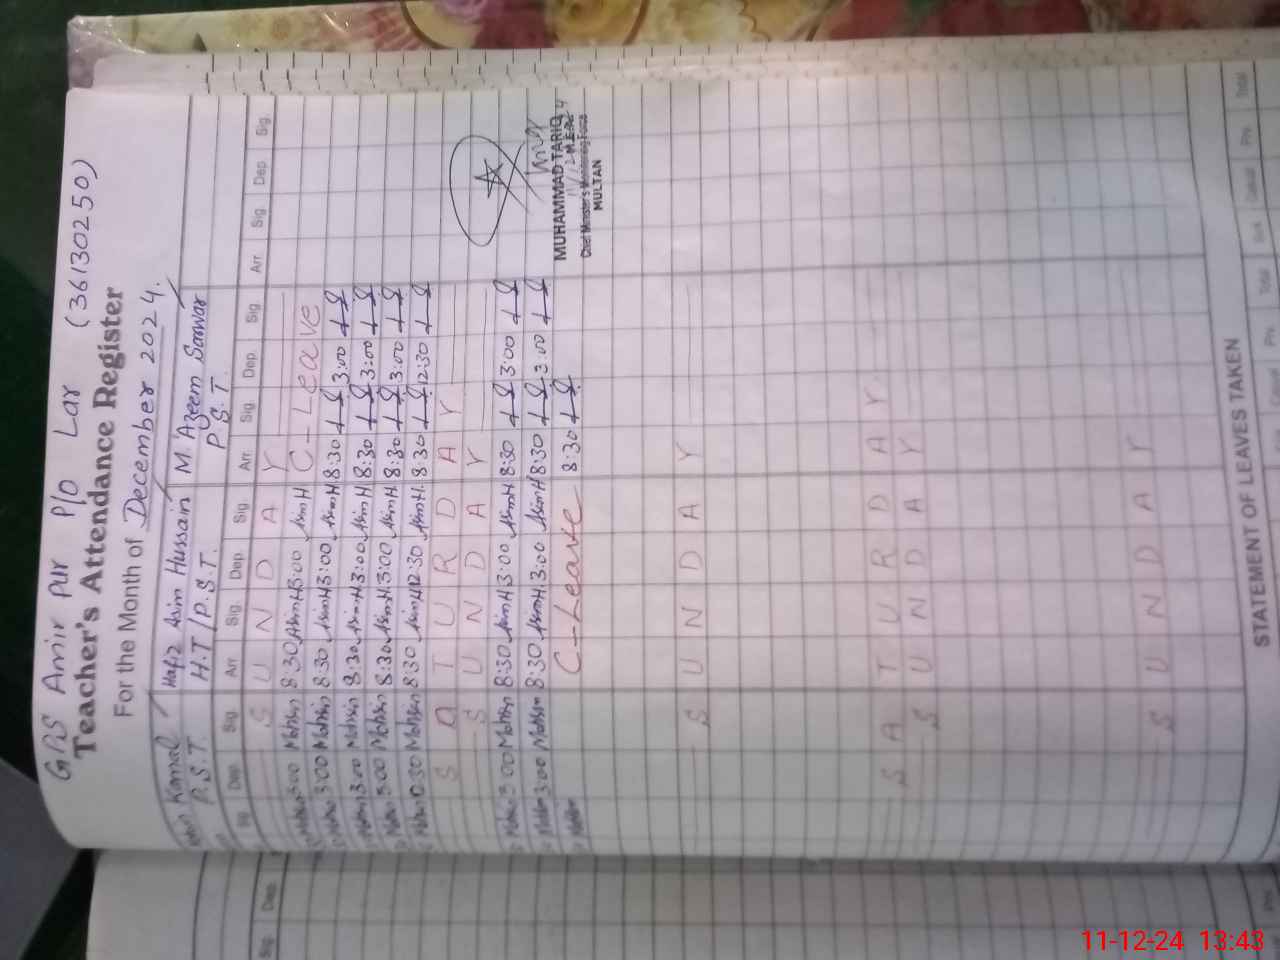 GPS Amir pur P/O Lar (36130250)
Teacher's Attendance Register
For the Month of December 2024.
Kamal Hafiz Asim Hussain M. Azeem Sarwar
P.S.T. H.T / P.S.T. P.S.T.
Sig. Dep. Sig. Arr. Sig. Dep. Sig. Arr. Sig. Dep. Sig. Arr. Sig. Dep. Sig.
S U N D A Y
3:00 Mohsin 8:30 AsimH 3:00 AsimH C-Leave
3:00 Mohsin 8:30 AsimH 3:00 AsimH 8:30 3:00
3:00 Mohsin 8:30 AsimH 3:00 AsimH 8:30 3:00
3:00 Mohsin 8:30 AsimH 3:00 AsimH 8:30 3:00
12:30 Mohsin 8:30 AsimH 12:30 AsimH. 8:30 12:30
S A T U R D A Y
S U N D A Y
3:00 Mohsin 8:30 AsimH 3:00 AsimH 8:30 3:00
3:00 Mohsin 8:30 AsimH 3:00 AsimH 8:30 3:00
C-Leave 8:30
MUHAMMAD TARIQ
Chief Minister's Monitoring Force
MULTAN
S U N D A Y
S A T U R D A Y
S U N D A Y
S U N D A Y
STATEMENT OF LEAVES TAKEN
Total Prv. Casual Total Prv. Casual Sick Total
Sig. Dep.
11-12-24 13:43